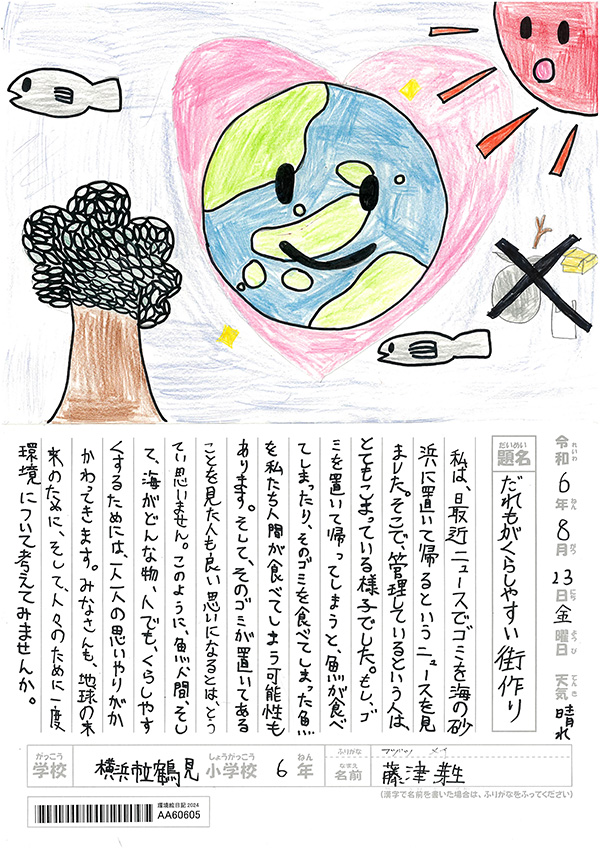 令和6年8月23日金曜日 天気 晴れ
れいわ ねん がつ にち ようび てんき
だいめい
題名 だれもがくらしやすい街作り
私は、最近ニュースでゴミを海の砂
浜に置いて帰るというニュースを見
ました。そこで、管理しているという人は、
とてもこまっている様子でした。もし、ゴ
ミを置いて帰ってしまうと、魚が食べ
てしまったり、そのゴミを食べてしまった魚
を私たち人間が食べてしまう可能性も
あります。そして、そのゴミが置いてある
ことを見た人も良い思いになるとは、とう
てい思いません。このように、魚、人間、そし
て、海がどんな物、人でも、くらしやす
くするためには、一人一人の思いやりがか
かわってきます。みなさんも、地球の未
来のために、そして、人々のために一度
環境について考えてみませんか。
がっこう しょうがっこう ねん ふりがな
学校 横浜市立鶴見 小学校 6 年
なまえ
名前 藤津 芽生
(漢字で名前を書いた場合は、ふりがなをふってください)
環境絵日記2024
AA60605